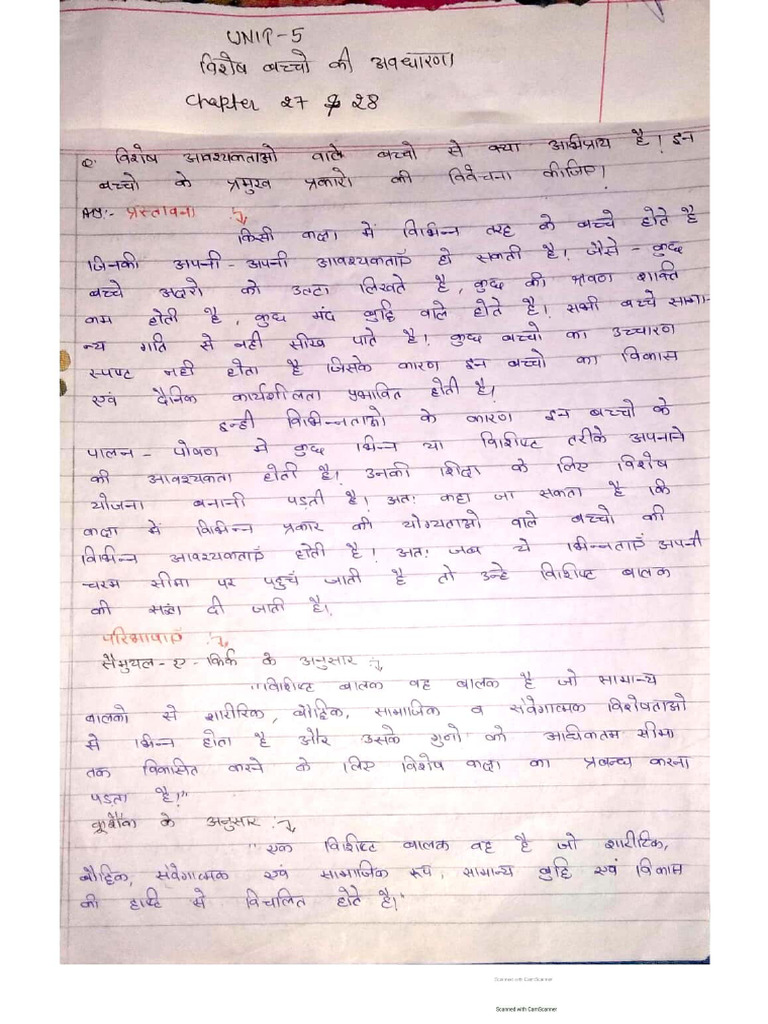 UNIT-5
विशेष बच्चो की अवधारणा
Chapter 27 & 28
Q. विशेष आवश्यकताओ वाले बच्चो से क्या अभिप्राय है। इन
बच्चो के प्रमुख प्रकारो की विवेचना कीजिए।
Ans:- प्रस्तावना :-
किसी कक्षा में विभिन्न तरह के बच्चे होते है
जिनकी अपनी - अपनी आवश्यकताएँ हो सकती है। जैसे - कुछ
बच्चे अक्षरो को उल्टा लिखते है, कुछ की श्रवण शक्ति
कम होती है, कुछ मंद बुद्धि वाले होते है। सभी बच्चे सामा-
न्य गति से नही सीख पाते है। कुछ बच्चो का उच्चारण
स्पष्ट नही होता है जिसके कारण इन बच्चो का विकास
एवं दैनिक कार्यशीलता प्रभावित होती है।
इन्ही विभिन्नताओ के कारण इन बच्चो के
पालन - पोषण मे कुछ भिन्न या विशिष्ट तरीके अपनाने
की आवश्यकता होती है। उनकी शिक्षा के लिए विशेष
योजना बनानी पड़ती है। अतः कहा जा सकता है कि
कक्षा मे विभिन्न प्रकार की योग्यताओ वाले बच्चो की
विभिन्न आवश्यकताएँ होती है। अतः जब ये भिन्नताएँ अपनी
चरम सीमा पर पहुचँ जाती है तो उन्हे विशिष्ट बालक
की संज्ञा दी जाती है।
परिभाषाएँ :-
सैमुयल-ए-किर्क के अनुसार :-
"विशिष्ट बालक वह बालक है जो सामान्य
बालको से शारीरिक, बौद्धिक, सामाजिक व संवेगात्मक विशेषताओ
से भिन्न होता है और उसके गुनो को अधिकतम सीमा
तक विकसित करने के लिए विशेष कक्षा का प्रबन्ध करना
पड़ता है।"
के अनुसार :-
"एक विशिष्ट बालक वह है जो शारीरिक,
बौद्धिक, संवेगात्मक एवं सामाजिक रूप, सामान्य बुद्धि एवं विकास
की दृष्टि से विचलित होते है।"
Scanned with CamScanner
Scanned with CamScanner